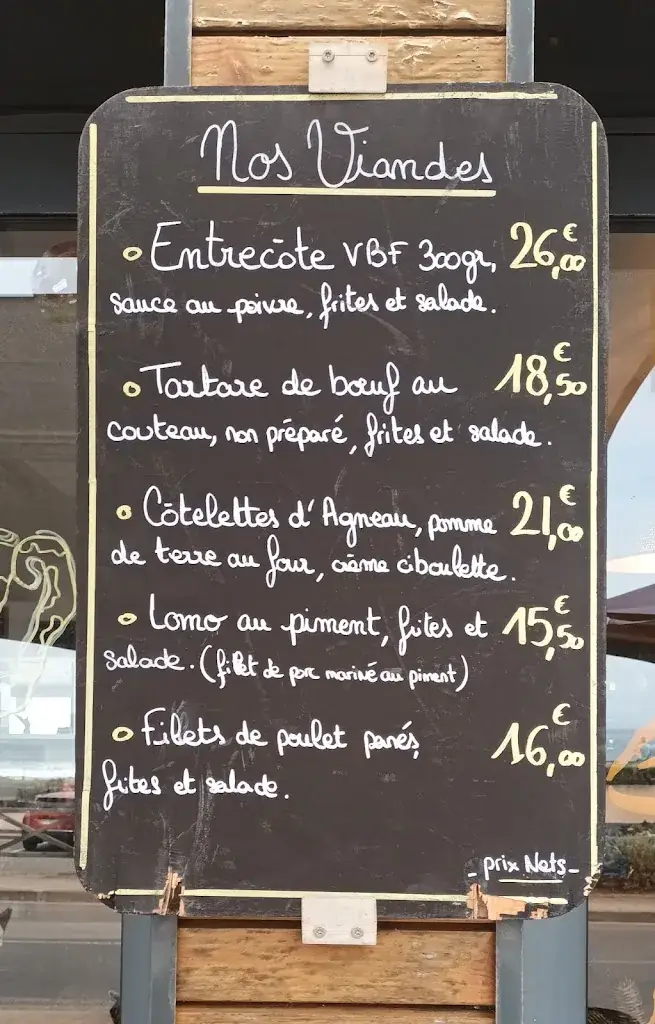 Nos Viandes
Entrecôte VBF 300gr, 26,00€
sauce au poivre, frites et salade.
Tartare de bœuf au 18,50€
couteau, non préparé, frites et salade.
Côtelettes d'Agneau, pomme 21,00€
de terre au four, crème ciboulette.
Lomo au piment, frites et 15,50€
salade. (filet de porc mariné au piment)
Filets de poulet panés, 16,00€
frites et salade.
- prix Nets -